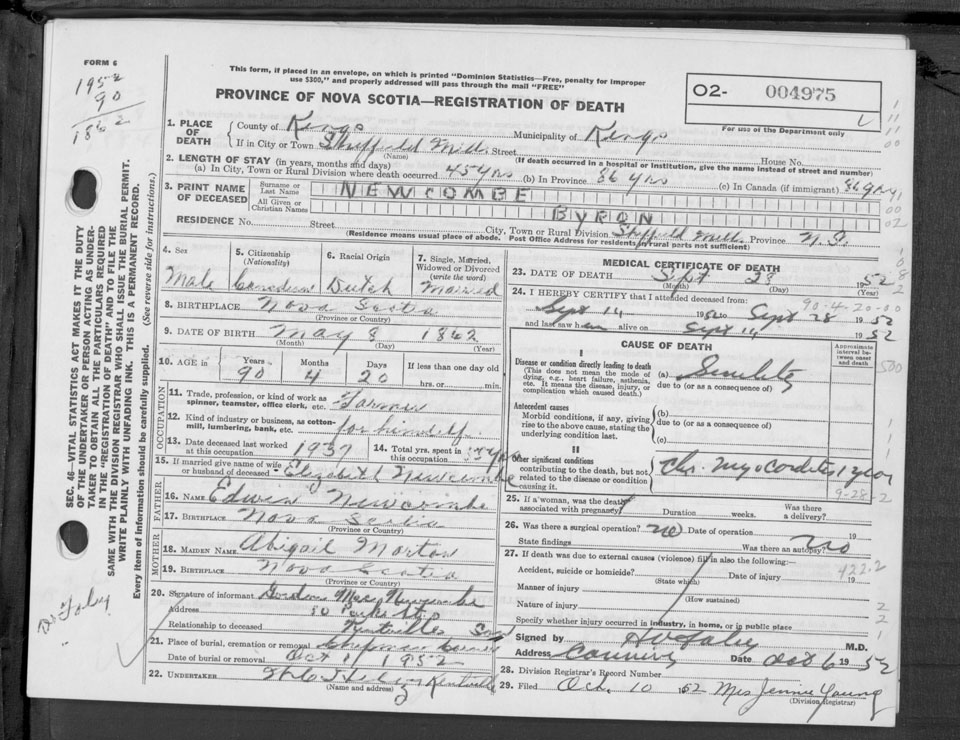 FORM 6
1952
90
1862
This form, if placed in an envelope, on which is printed "Dominion Statistics—Free, penalty for improper
use $300," and properly addressed will pass through the mail "FREE"
PROVINCE OF NOVA SCOTIA—REGISTRATION OF DEATH
O2- 004975
For use of the Department only
SEC. 46—VITAL STATISTICS ACT MAKES IT THE DUTY
OF THE UNDERTAKER OR PERSON ACTING AS UNDER-
TAKER TO OBTAIN ALL THE PARTICULARS REQUIRED
IN THE "REGISTRATION OF DEATH" AND TO FILE THE
SAME WITH THE DIVISION REGISTRAR WHO SHALL ISSUE THE BURIAL PERMIT.
WRITE PLAINLY WITH UNFADING INK. THIS IS A PERMANENT RECORD.
Every item of Information should be carefully supplied. (See reverse side for instructions.)
1. PLACE OF DEATH
County of Kings Municipality of Kings
If in City or Town Sheffield Mill Street House No.
(Name) (If death occurred in a hospital or Institution, give the name instead of street and number)
2. LENGTH OF STAY (in years, months and days)
(a) In City, Town or Rural Division where death occurred 45 yrs (b) In Province 86 yrs (c) In Canada (if immigrant) 86 yrs
3. PRINT NAME OF DECEASED
Surname or Last Name NEWCOMBE
All Given or Christian Names BYRON
RESIDENCE No. Street City, Town or Rural Division Sheffield Mill Province N.S.
(Residence means usual place of abode. Post Office Address for residents in rural parts not sufficient)
4. Sex
Male
5. Citizenship (Nationality)
Canadian
6. Racial Origin
Dutch
7. Single, Married, Widowed or Divorced (write the word)
Married
8. BIRTHPLACE Nova Scotia
(Province or Country)
9. DATE OF BIRTH May 8 1862
(Month) (Day) (Year)
10. AGE in Years Months Days If less than one day old
90 4 20 hrs. or min.
OCCUPATION
11. Trade, profession, or kind of work as spinner, teamster, office clerk, etc. Farmer
12. Kind of industry or business, as cotton-mill, lumbering, bank, etc. for himself
13. Date deceased last worked at this occupation 1937
14. Total yrs. spent in this occupation
15. If married give name of wife or husband of deceased - Elizabeth Newcombe
FATHER
16. NAME Edwin Newcombe
17. BIRTHPLACE Nova Scotia
(Province or Country)
MOTHER
18. MAIDEN NAME Abigail Morton
19. BIRTHPLACE Nova Scotia
(Province or Country)
20. Signature of informant Gordon Newcombe
Address
Kentville
Relationship to deceased Son
21. Place of burial, cremation or removal Chipman Corner
Date of burial or removal Oct 1 1952
22. UNDERTAKER Kentville
(Name and address)
MEDICAL CERTIFICATE OF DEATH
23. DATE OF DEATH Sept 28 1952
(Month) (Day) (Year)
24. I HEREBY CERTIFY that I attended deceased from:
90-4-20-00
Sept 14 1952 to Sept 28 1952
and last saw him alive on Sept 14 1952
CAUSE OF DEATH
Approximate interval between onset and death
I
Disease or condition directly leading to death
(This does not mean the mode of dying, e.g., heart failure, asthenia, etc. It means the disease, injury, or complication which caused death.)
(a) Senility
due to (or as a consequence of)
Antecedent causes
Morbid conditions, if any, giving rise to the above cause, stating the underlying condition last.
(b)
due to (or as a consequence of)
(c)
II
Other significant conditions contributing to the death, but not related to the disease or condition causing it.
Chr. Myocarditis 1 year
9-28-2
25. If a woman, was the death associated with pregnancy? Duration weeks. Was there a delivery?
26. Was there a surgical operation? No Date of operation 19
State findings Was there an autopsy? No
27. If death was due to external causes (violence) fill in also the following:
422.2
Accident, suicide or homicide? Date of injury 19
(State which)
Manner of injury
(How sustained)
Nature of injury
Specify whether injury occurred in industry, in home, or in public place
Signed by M.D.
Address Canning Date Oct 6 1952
28. Division Registrar's Record Number
29. Filed Oct. 10 1952 Mrs Jennie Young
(Division Registrar)